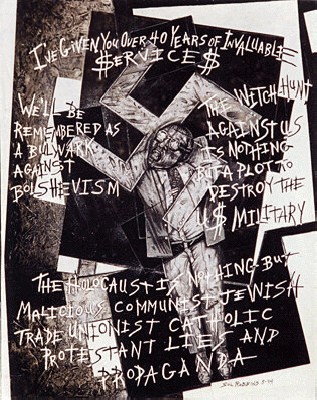 I'VE GIVEN YOU OVER 40 YEARS OF INVALUABLE
$ERVICE$
WE'LL BE
REMEMBERED AS
A BULWARK
AGAINST
BOLSHEVISM
THE WITCH HUNT
AGAINST US
IS NOTHING
BUT A PLOT TO
DESTROY THE
U$ MILITARY
THE HOLOCAUST IS NOTHING BUT
MALICIOUS COMMUNIST JEWISH
TRADE UNIONIST CATHOLIC
PROTESTANT LIES AND
PROPAGANDA